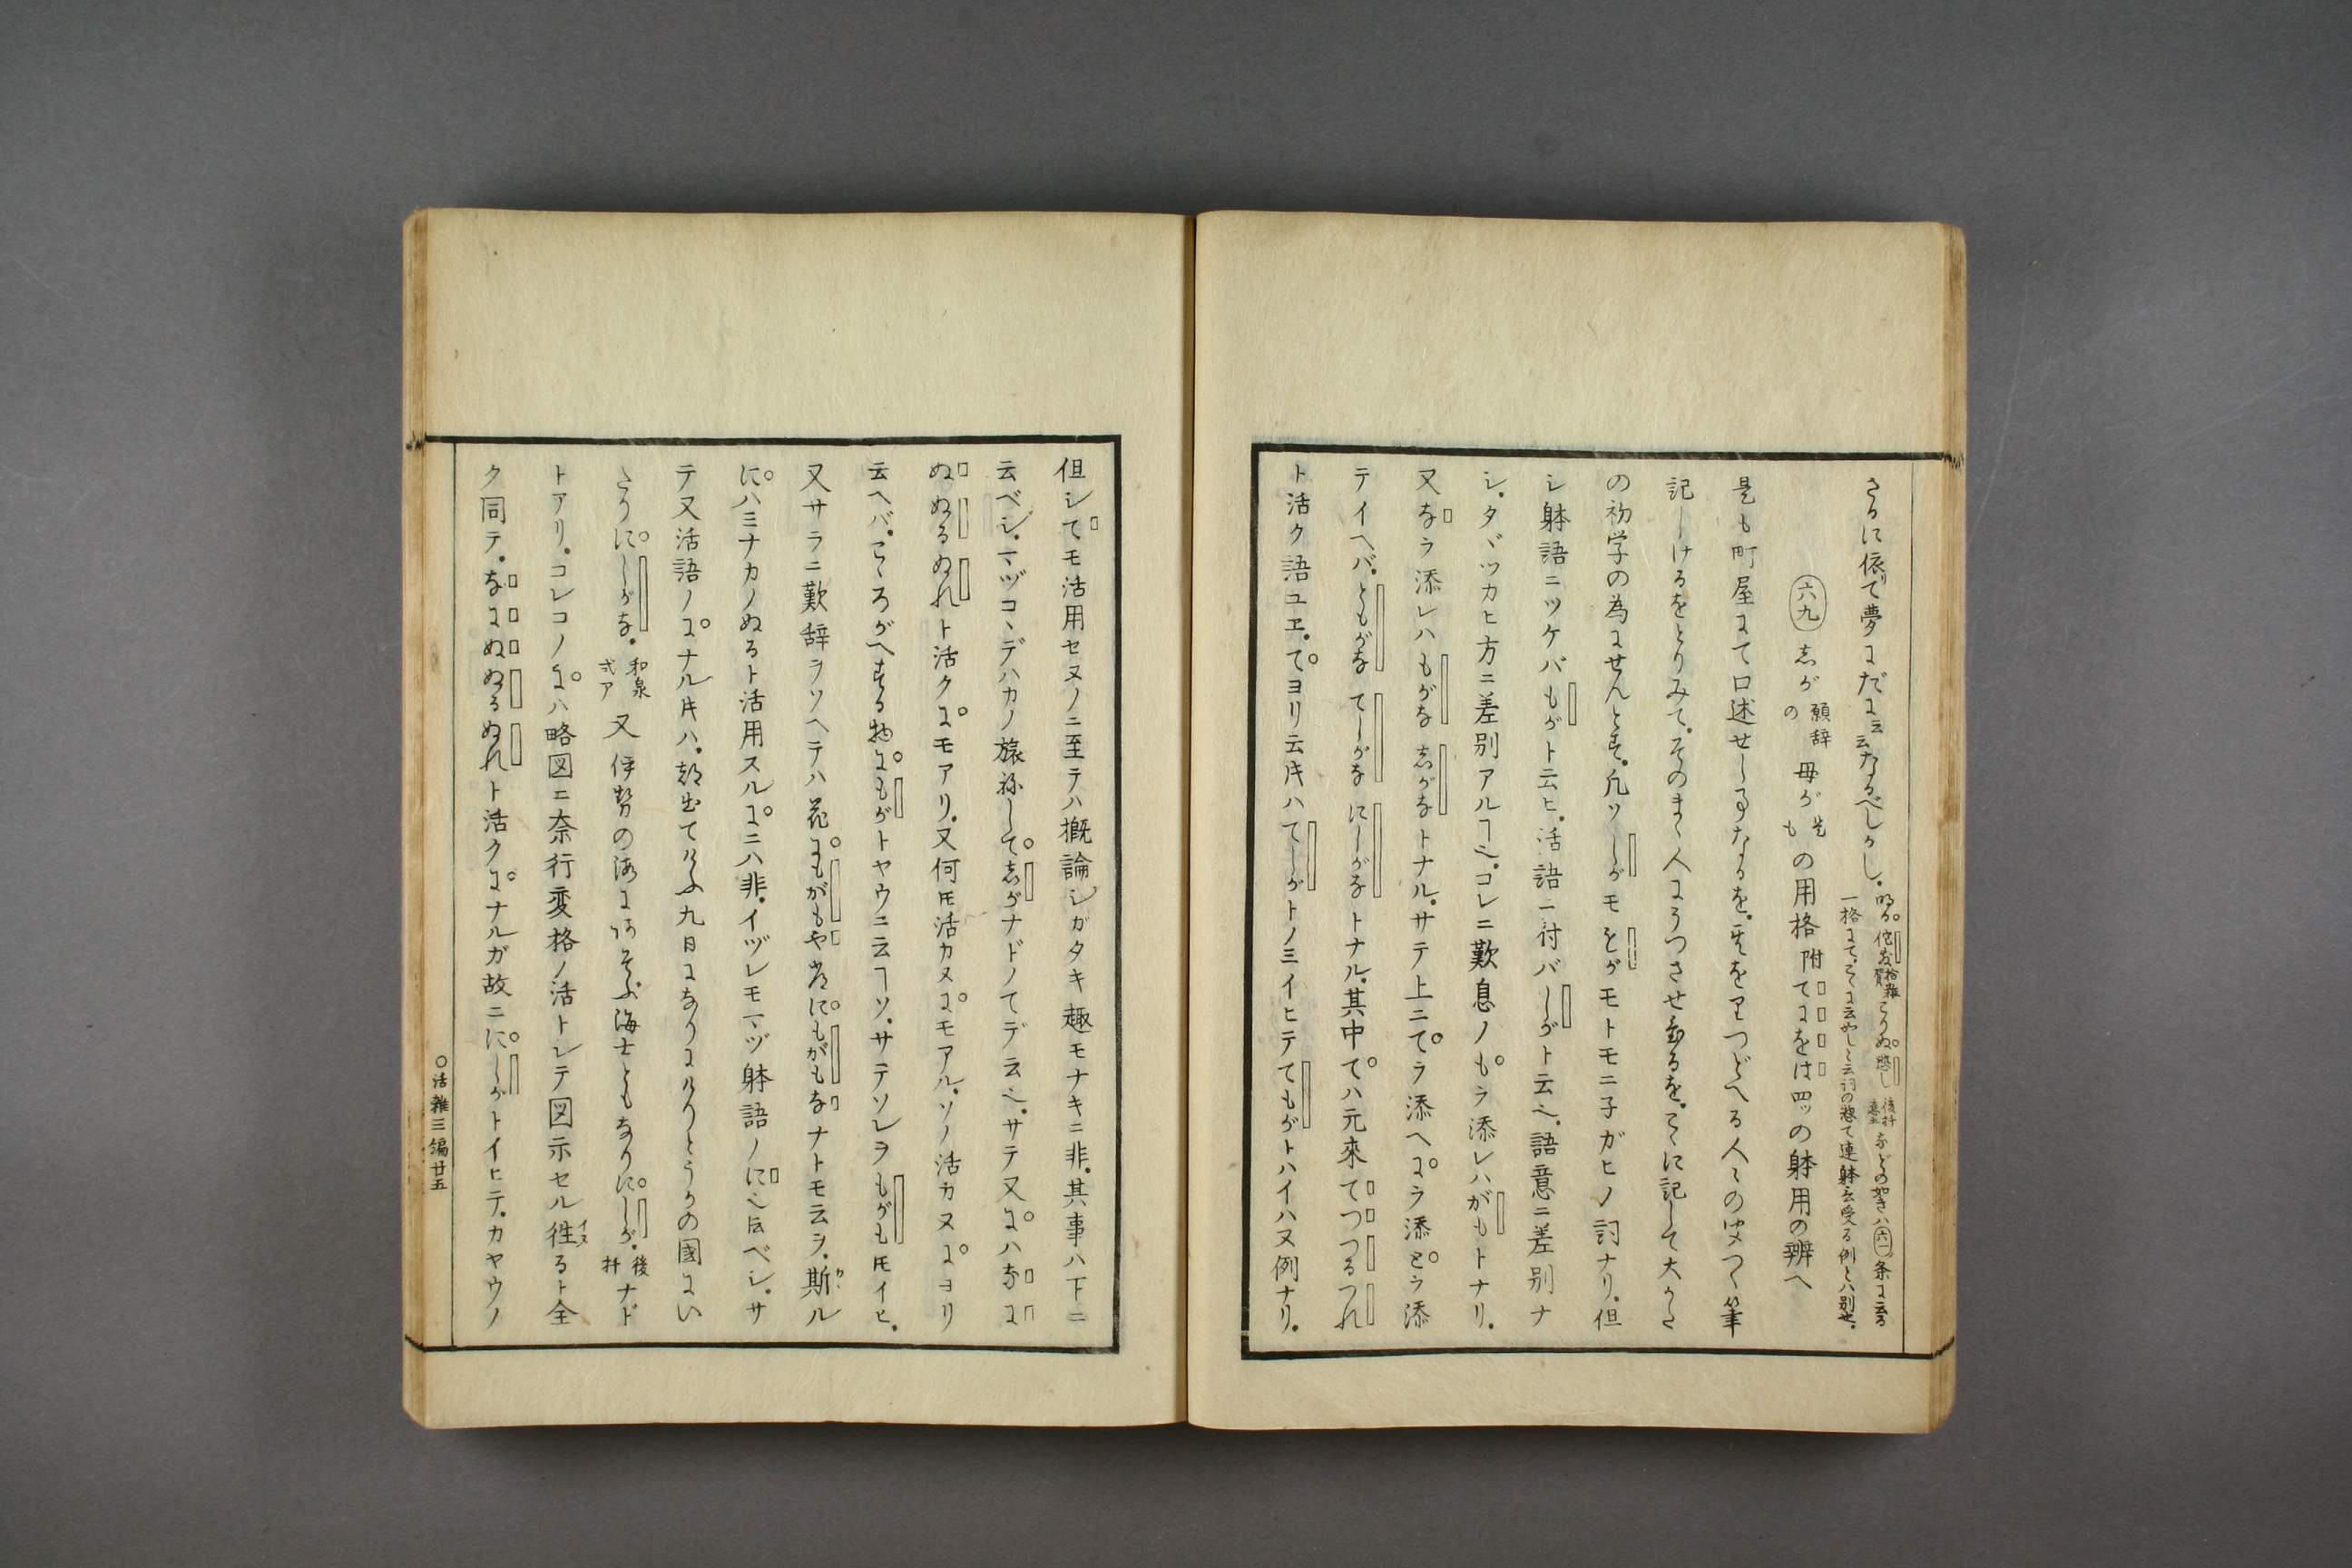 さるに依て夢にだに云云なるべしかし。
一格にて、こゝに云やしと云詞の惣て連躰云受る例とハ別せ。
六九 志が 願辞の 母が 先も の用格 附てにをは四ッの躰用の辨へ
是も町屋にて口述せし事なるを。其をりつどへる人々の
記しけるをとりみて。そのまゝ人にうつさせ
の初学の為にせんとす。凡ソしがモをがモトモニ子ガヒノ詞ナリ。但
シ躰語ニツケバもがト云ヒ。活語ニ付バしがト云也。語意ニ差別ナ
シ。タヾツカヒ方ニ差別アルヿ也。コレニ歎息ノもヲ添レハがもトナリ。
又なヲ添レハもがな志がなトナル。サテ上ニてヲ添へにヲ添とヲ添
テイヘバ。ともがなてしがなにしがなトナル。其中てハ元來てつつるつれ
ト活ク語ユヱ。てヨリ云ㇳキハてしがトノミイヒテてもがトハイハヌ例ナリ。
但シてモ活用セヌノニ至テハ概論シガタキ趣モナキニ非。其事ハ下ニ
云ベシ。マヅコヽデハカノ旅祢して志がナドノてデ云也。サテ又にハなに
ぬぬるぬれト活クにモアリ。又何ㇳモ活カヌにモアル。ソノ活カヌにヨリ
云ヘバ。こゝろがへする物にもがトヤウニ云ヿソ。サテソレヲもがもㇳモイヒ。
又サラニ歎辞ヲソヘテハ花にもがもや常にもがもなナトモ云ヲ。斯ル
にハミナカノぬるト活用スルにニハ非。イヅレモマヅ躰語ノに也ㇳ云ベシ。サ
テ又活語ノにナルㇳキハ。都出てけふ九日になりにけりとうかの國にい
たりにしがな。和泉式ア 又 伊勢の海にあそぶ海士ともなりにしが。後拝 ナド
トアリ。コレコノにハ略図ニ奈行変格ノ活トシテ図示セル徃るト全
ク同テ。なにぬぬるぬれト活クにナルガ故ニにしがトイヒテ。カヤウノ
○活雜三編廿五